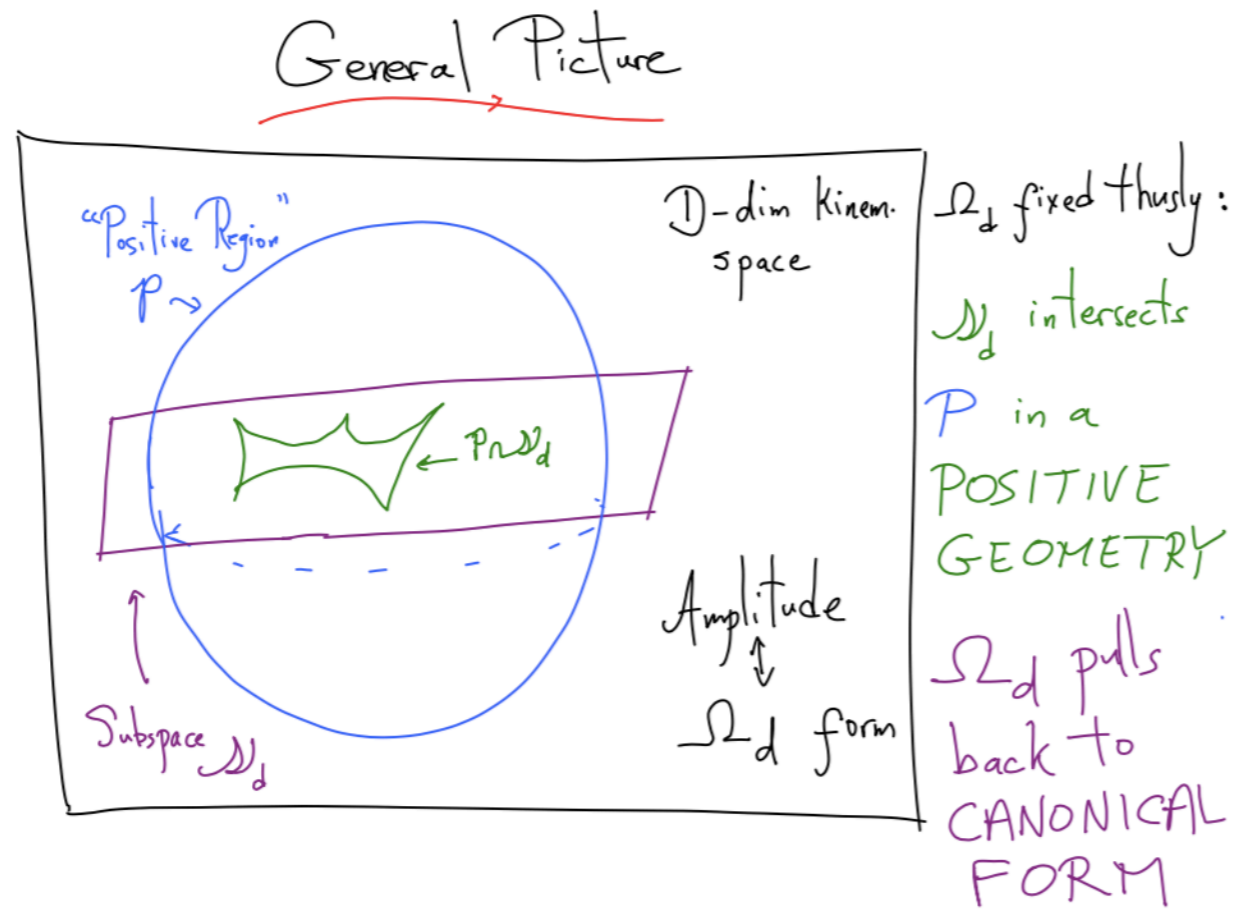 General Picture
"Positive Region"
P
D-dim Kinem.
space
P∩𝒮_d
Amplitude
↕
Ω_d form
Subspace 𝒮_d
Ω_d fixed thusly:
𝒮_d intersects
P in a
POSITIVE
GEOMETRY
Ω_d pulls
back to
CANONICAL
FORM